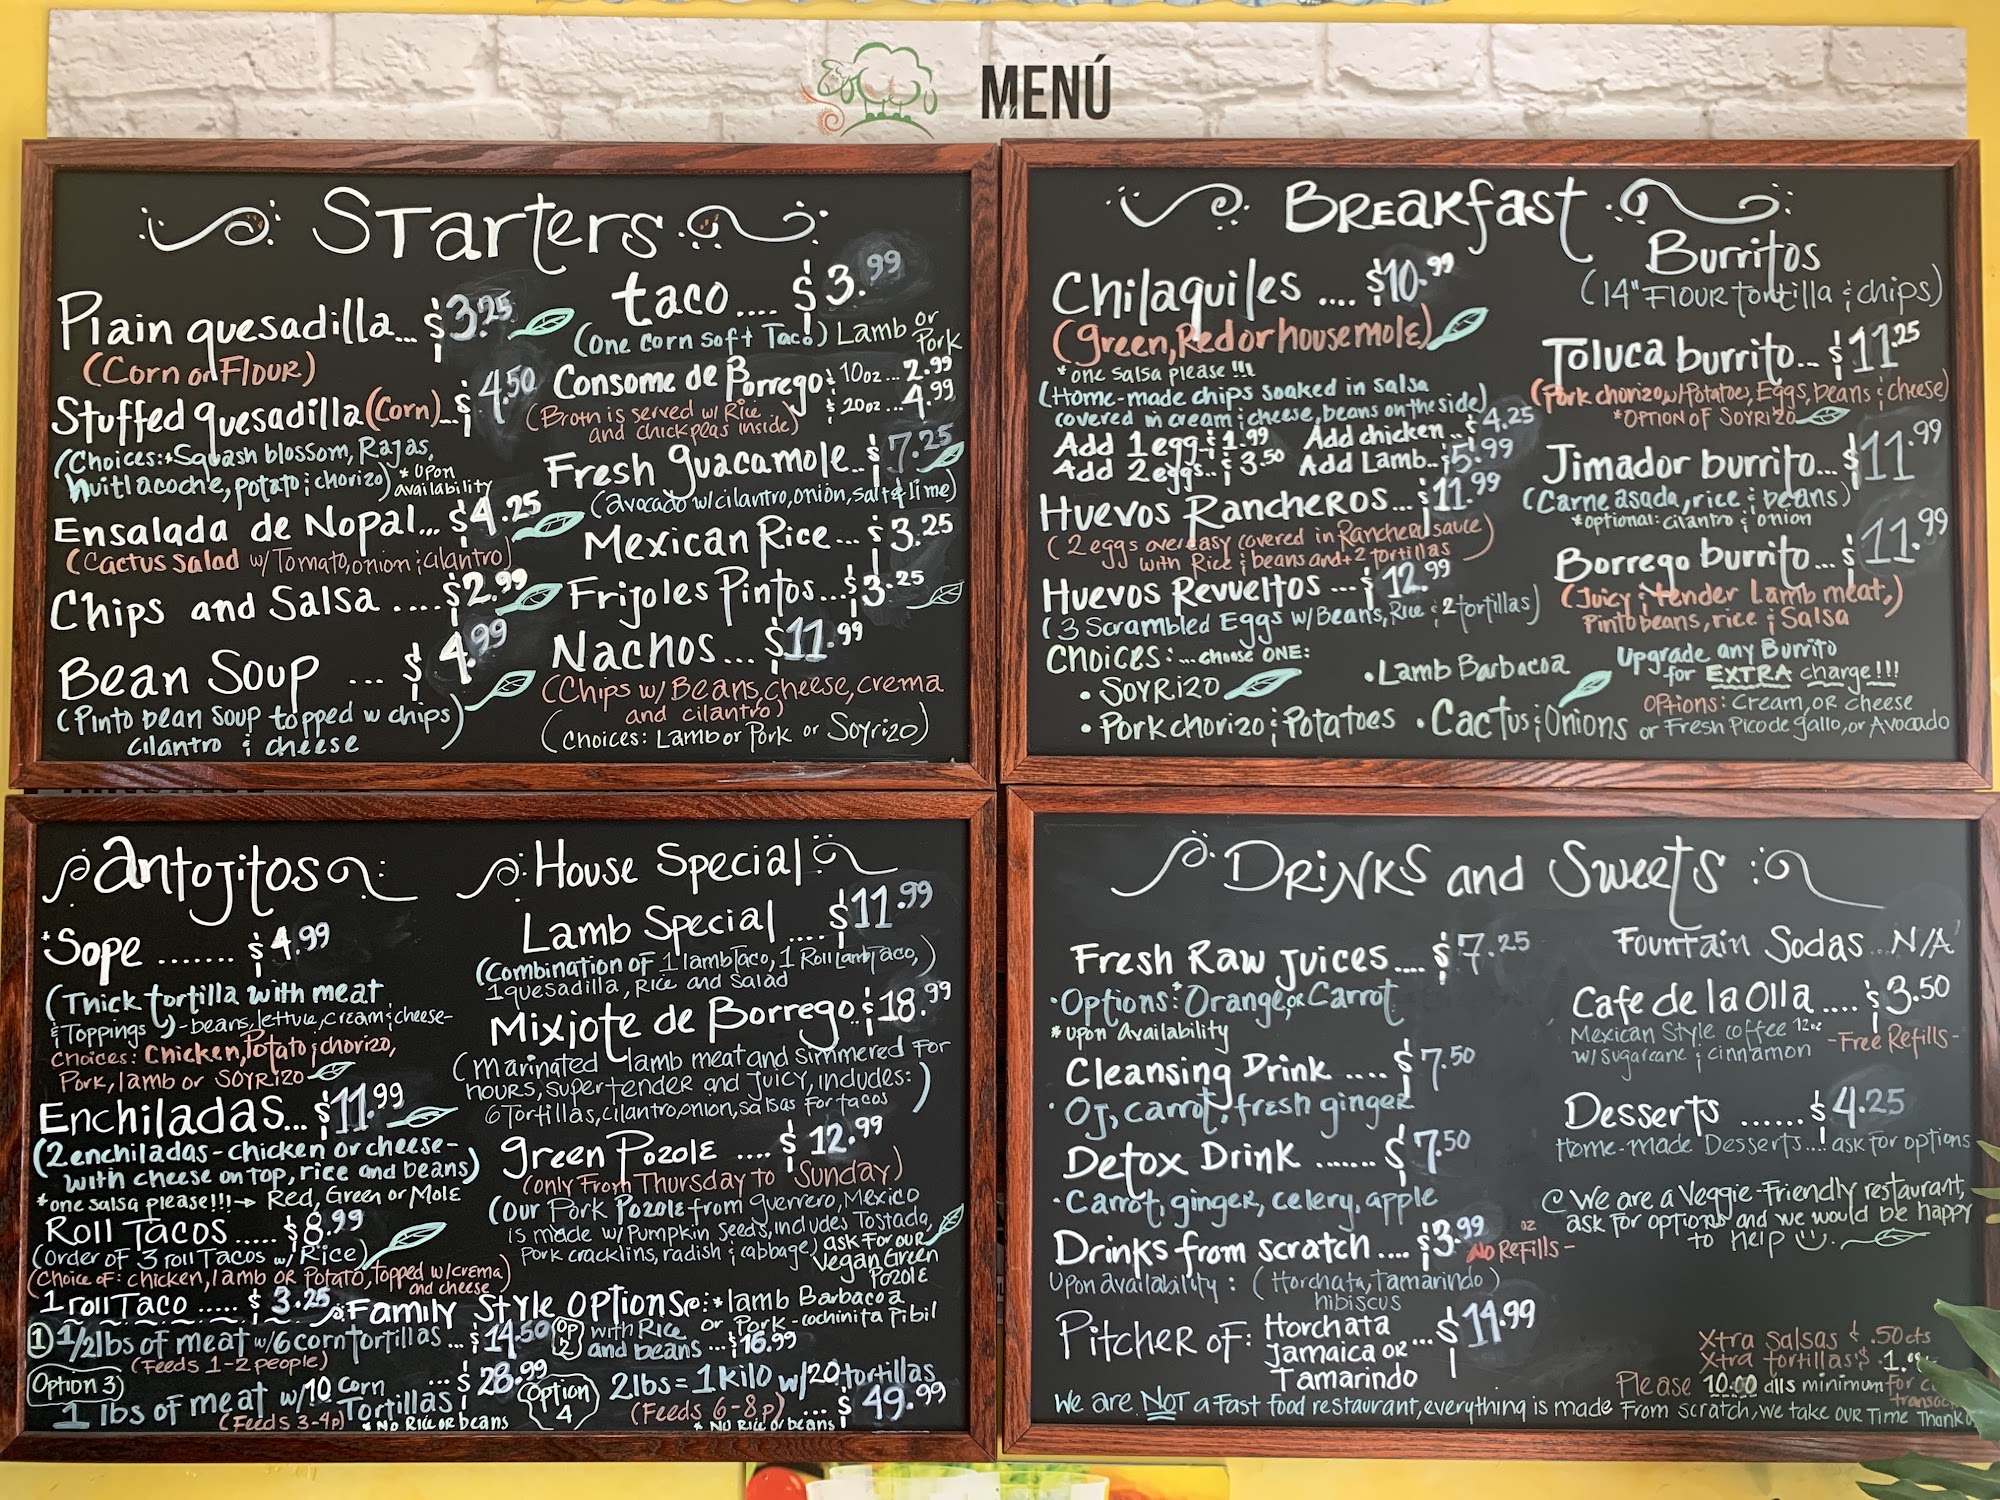 MENÚ
Starters
Plain quesadilla... $3.25
(Corn or Flour)
Stuffed quesadilla (Corn)... $4.50
(Choices: *Squash blossom, Rajas,
huitlacoche, potato & chorizo) *upon
availability
Ensalada de Nopal... $4.25
(Cactus salad w/ Tomato, onion & cilantro)
Chips and Salsa .... $2.99
Bean Soup ... $4.99
(Pinto bean soup topped w chips)
cilantro & cheese
taco.... $3.99
(one corn soft Taco) Lamb or
Pork
Consome de Borrego $ 10oz... 2.99
$ 20oz... 4.99
(Broth is served w/ Rice
and chickpeas inside)
Fresh guacamole.. $7.25
(avocado w/ cilantro, onion, salt & lime)
Mexican Rice... $3.25
Frijoles Pintos... $3.25
Nachos... $11.99
(Chips w/ Beans, cheese, crema
and cilantro)
(Choices: Lamb or Pork or Soyrizo)
Breakfast
Chilaquiles .... $10.99
(green, Red or house mole)
*one salsa please!!!
(Home-made chips soaked in salsa
covered in cream & cheese, beans on the side)
Add 1 egg.. $1.99 Add chicken.. $4.25
Add 2 eggs.. $3.50 Add Lamb.. $5.99
Huevos Rancheros... $11.99
(2 eggs over easy covered in Ranchera sauce)
with Rice & beans and + 2 tortillas
Huevos Revueltos ... $12.99
(3 Scrambled Eggs w/ Beans, Rice & 2 tortillas)
Choices: ... choose ONE:
• Soyrizo
• Lamb Barbacoa
• Pork chorizo & Potatoes • Cactus & Onions
Burritos
(14" Flour tortilla & chips)
Toluca burrito... $11.25
(Pork chorizo w/ Potatoes, Eggs, beans & cheese)
*Option of Soyrizo
Jimador burrito... $11.99
(Carne asada, rice & beans)
*optional: cilantro & onion
Borrego burrito... $11.99
(Juicy & tender Lamb meat,)
Pinto beans, rice & Salsa
Upgrade any Burrito
for EXTRA charge!!!
Options: Cream, or cheese
or Fresh Pico de gallo, or Avocado
Antojitos
*Sope ....... $4.99
(Thick tortilla with meat
& Toppings) -beans, lettuce, cream & cheese-
Choices: Chicken, Potato & chorizo,
Pork, lamb or Soyrizo
Enchiladas... $11.99
(2 enchiladas - chicken or cheese-
with cheese on top, rice and beans)
*one salsa please!!! → Red, Green or Mole
Roll Tacos ..... $8.99
(Order of 3 roll Tacos w/ Rice)
(Choice of: chicken, lamb or Potato, topped w/ crema
and cheese)
1 roll Taco ..... $3.25
House Special
Lamb Special .... $11.99
(Combination of 1 lamb Taco, 1 Roll Lamb Taco,)
1 quesadilla, Rice and Salad
Mixiote de Borrego.. $18.99
(Marinated lamb meat and simmered for
hours, super tender and juicy, includes:
6 Tortillas, cilantro, onion, salsas for tacos)
green Pozole .... $12.99
(only From Thursday to Sunday)
(Our Pork Pozole from guerrero, Mexico
is made w/ Pumpkin seeds, includes Tostada,
pork cracklins, radish & cabbage) ask for our
Vegan Green
Pozole
Family Style Options: *lamb Barbacoa
or Pork-cochinita Pibil
1 1/2 lbs of meat w/ 6 corn tortillas ... $14.50
(Feeds 1-2 people)
OP 2 with Rice
and beans ... $16.99
Option 3 1 lbs of meat w/ 10 Corn
Tortillas ... $28.99
(Feeds 3-4p) *No Rice or beans
Option 4 2 lbs = 1 kilo w/ 20 tortillas
(Feeds 6-8p) ... $49.99
*No Rice or beans
Drinks and Sweets
Fresh Raw juices.... $7.25
• Options: *Orange, or Carrot
*upon Availability
Cleansing Drink .... $7.50
• OJ, carrot, fresh ginger
Detox Drink ....... $7.50
• Carrot, ginger, celery, apple
Drinks from scratch .... $3.99 oz
No Refills -
Upon availability: (Horchata, Tamarindo)
hibiscus
Pitcher of: Horchata
Jamaica or ... $14.99
Tamarindo
Fountain Sodas... N/A
Cafe de la Olla .... $3.50
Mexican Style coffee 12oz
w/ sugarcane & cinnamon -Free Refills-
Desserts ...... $4.25
Home-made Desserts...! ask for options
We are a Veggie-Friendly restaurant,
ask for options and we would be happy
to help
Xtra Salsas $ .50cts
Xtra tortillas $
Please 10.00 dlls minimum for
We are NOT a fast food restaurant, everything is made from scratch, we take our Time